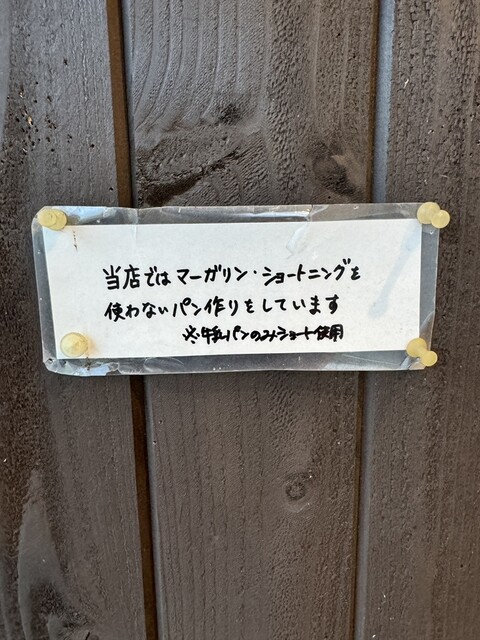 当店ではマーガリン・ショートニングを
使わないパン作りをしています
※牛乳パンのみショート使用